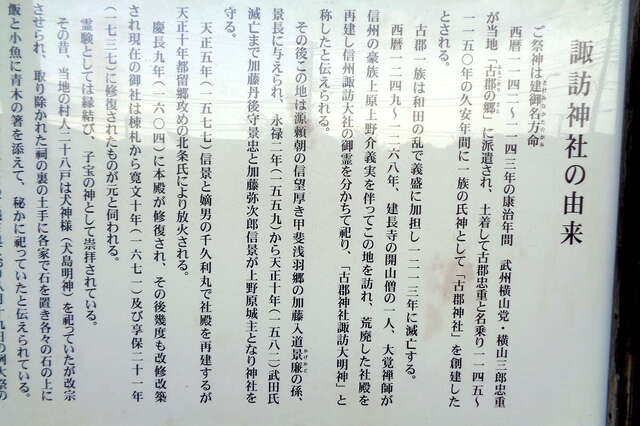 諏訪神社の由来
ご祭神は建御名方命
西暦一一四二～一一四三年の康治年間 武州横山党・横山三郎忠重
が当地「古郡の郷」に派遣され、土着して古郡忠重と名乗り一一四五～
一一五〇年の久安年間に一族の氏神として「古郡神社」を創建した
とされる。
古郡一族は和田の乱で義盛に加担し一二一三年に滅亡する。
西暦一二四九～一二六八年、建長寺の開山僧の一人、大覚禅師が
信州の豪族上原上野介義実を伴ってこの地を訪れ、荒廃した社殿を
再建し信州諏訪大社の御霊を分かちて祀り、「古郡神社諏訪大明神」と
称したと伝えられる。
その後この地は源頼朝の信望厚き甲斐浅羽郷の加藤入道景廉の係、
景長に与えられ、永禄二年（一五五九）から天正十年（一五八二）武田氏
滅亡まで加藤丹後守景忠と加藤弥次郎信景が上野原城主となり神社を
守る。
天正五年（一五七七）信景と嫡男の千久利丸で社殿を再建するが
天正十年都留郷攻めの北条氏により放火される。
慶長九年（一六〇四）に本殿が修復され、その後幾度も改修改築
され現在の御社は棟札から寛文十年（一六七一）及び享保二十一年
（一七三七）に修復されたものが元と伺われる。
霊験としては縁結び、子宝の神として崇拝されている。
その昔、当地の村人二十八戸は犬神様（犬島明神）を祀っていたが改宗
させられ、取り除かれた祠の裏の土手に各家で石を置き各々の石の上に
飯と小魚に青木の箸を添えて、秘かに祀っていたと伝えられている。